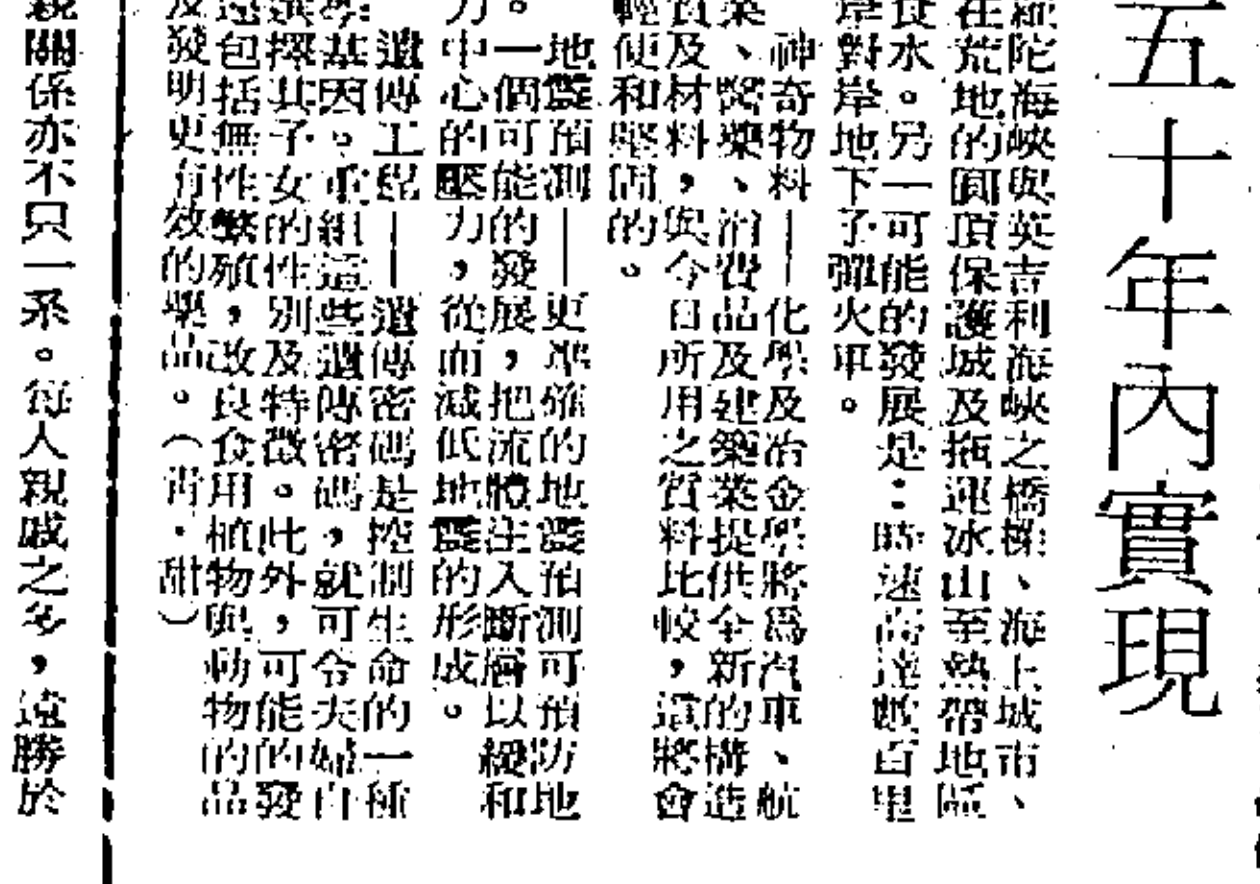 五十年內實現
紐陀海峽與英吉利海峽之橋樑、海上城市、
在荒地的圓頂保護城及拖運冰山至熱帶地區
食水。另一可能的發展是：時速高達數百里
岸對岸地下子彈火車。
神奇物料——化學及冶金學將爲汽車、航
業、醫藥、消費品及建築業提供全新的構造
質及材料，與今日所用之質料比較，這將會
輕便和堅固的。
地震預測——更準確的地震預測可預防地
。一個可能的發展，把流體注入斷層以緩和
力中心的壓力，從而減低地震的形成。
遺傳工程——遺傳密碼是控制生命的一種
學基因。重組這些遺傳密碼，就可令夫婦自
選擇其子女的性別及特徵。此外，可能的發
還包括無性繁殖，改良食用植物與動物的品
及發明更有效的藥品。（靑・甜）
親關係亦不只一系。每人親戚之多，遠勝於